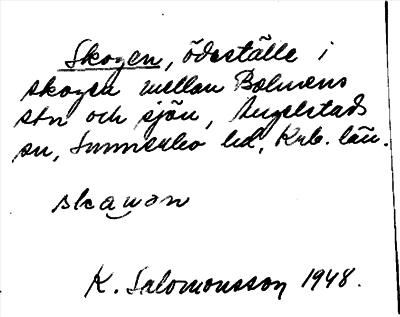 Skogen, ödeställe i
skogen mellan Bolmens
stn och sjön, Angelstads
sn, Sunnerbo hd, Krb. län.
skawən
K. Salomonsson 1948.